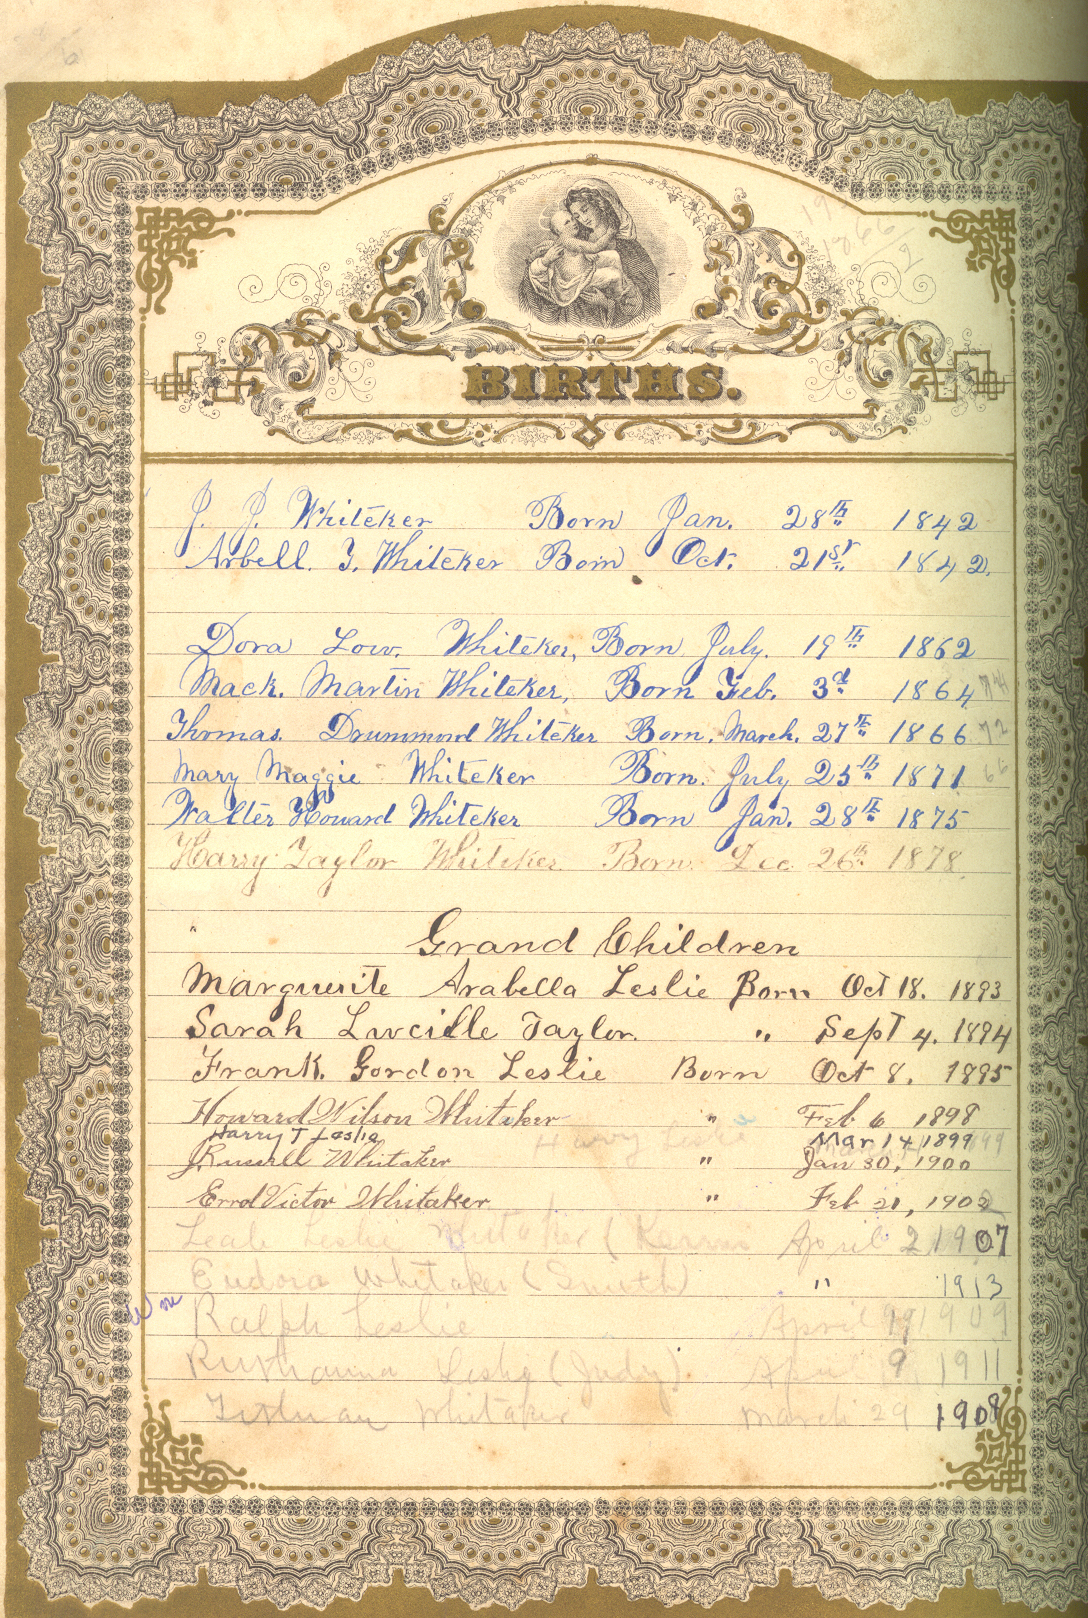 1866
2
BIRTHS.
J. J. Whiteker Born Jan. 28th 1842
Arbell. T. Whiteker Born Oct. 21st 1842.
Dora Low. Whiteker, Born July. 19th 1862
Mack. Martin Whiteker, Born Feb. 3d 1864 74
Thomas. Drummond Whiteker Born. March. 27th 1866 72
Mary Maggie Whiteker Born. July 25th 1871 66
Walter Howard Whiteker Born Jan. 28th 1875
Harry Taylor Whiteker Born. Dec 26th 1878.
Grand Children
Marguerite Arabella Leslie Born Oct 18. 1893
Sarah Lucille Taylor. " Sept 4. 1894
Frank. Gordon Leslie Born Oct 8. 1895
Howard Wilson Whitaker " Feb 6 1898
Harry T Leslie Harry Leslie Mar 14 1899
J Russell Whitaker " Jan 30, 1900
Errol Victor Whitaker " Feb 21, 1902
Leah Leslie Whitaker ( April 2 1907
Eudora Whitaker (Smith) " 1913
Wm Ralph Leslie April 1909
Ruthanna Leslie (Judy) April 9 1911
Whitaker March 29 1908